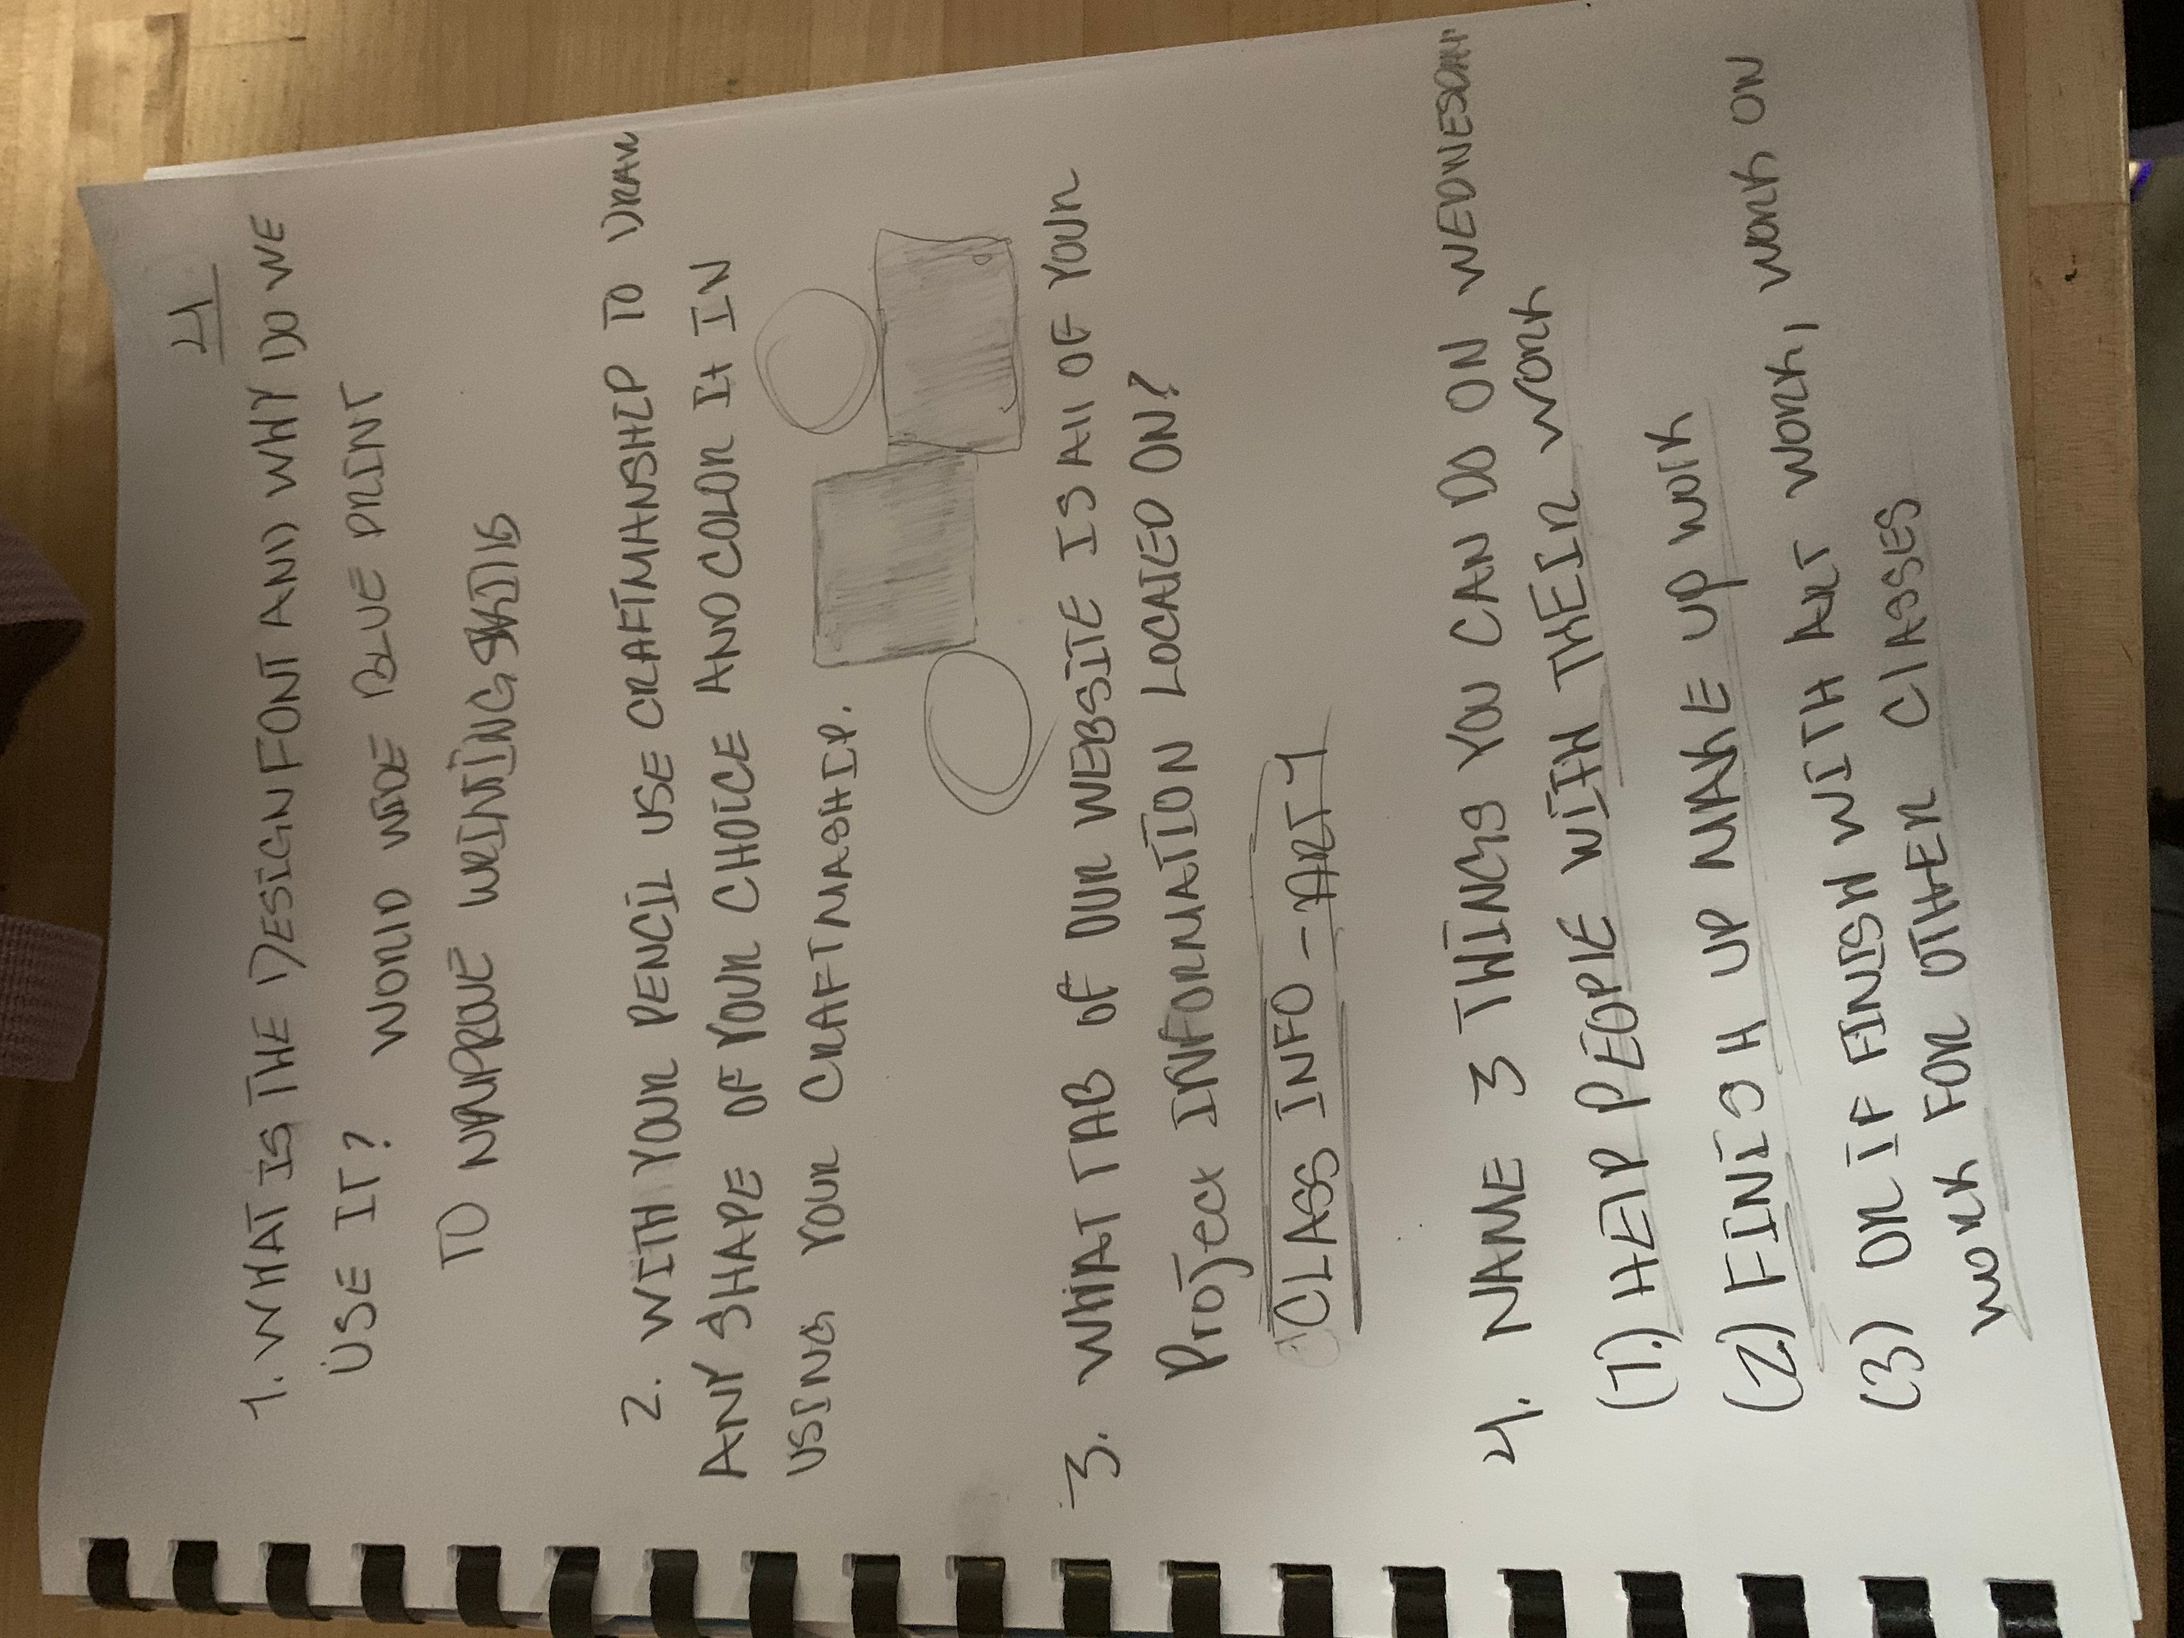 4
1. WHAT IS THE DESIGN FONT AND WHY DO WE
USE IT? WORlD WIDE BLUE PRINT
TO WRITING SKIllS
2. WITH YOUR PENCIL USE CRAFTMANSHIP TO DRAW
ANY SHAPE OF YOUR CHOICE AND COLOR It IN
USING YOUR CRAFTMASHIP.
3. WHAT TAB OF OUR WEBSITE IS All OF YOUR
Project INFORMATION LOCATED ON?
CLASS INFO - ART 1
4. NAME 3 THINGS YOU CAN DO ON WEDNESDAY
(1.) HElP PEOPlE WITH THEIR WORK
(2.) FINISH UP MAKE UP WORK
(3) OR IF FINISH WITH ART WORK, WORK ON
WORK FOR OTHER ClASSES